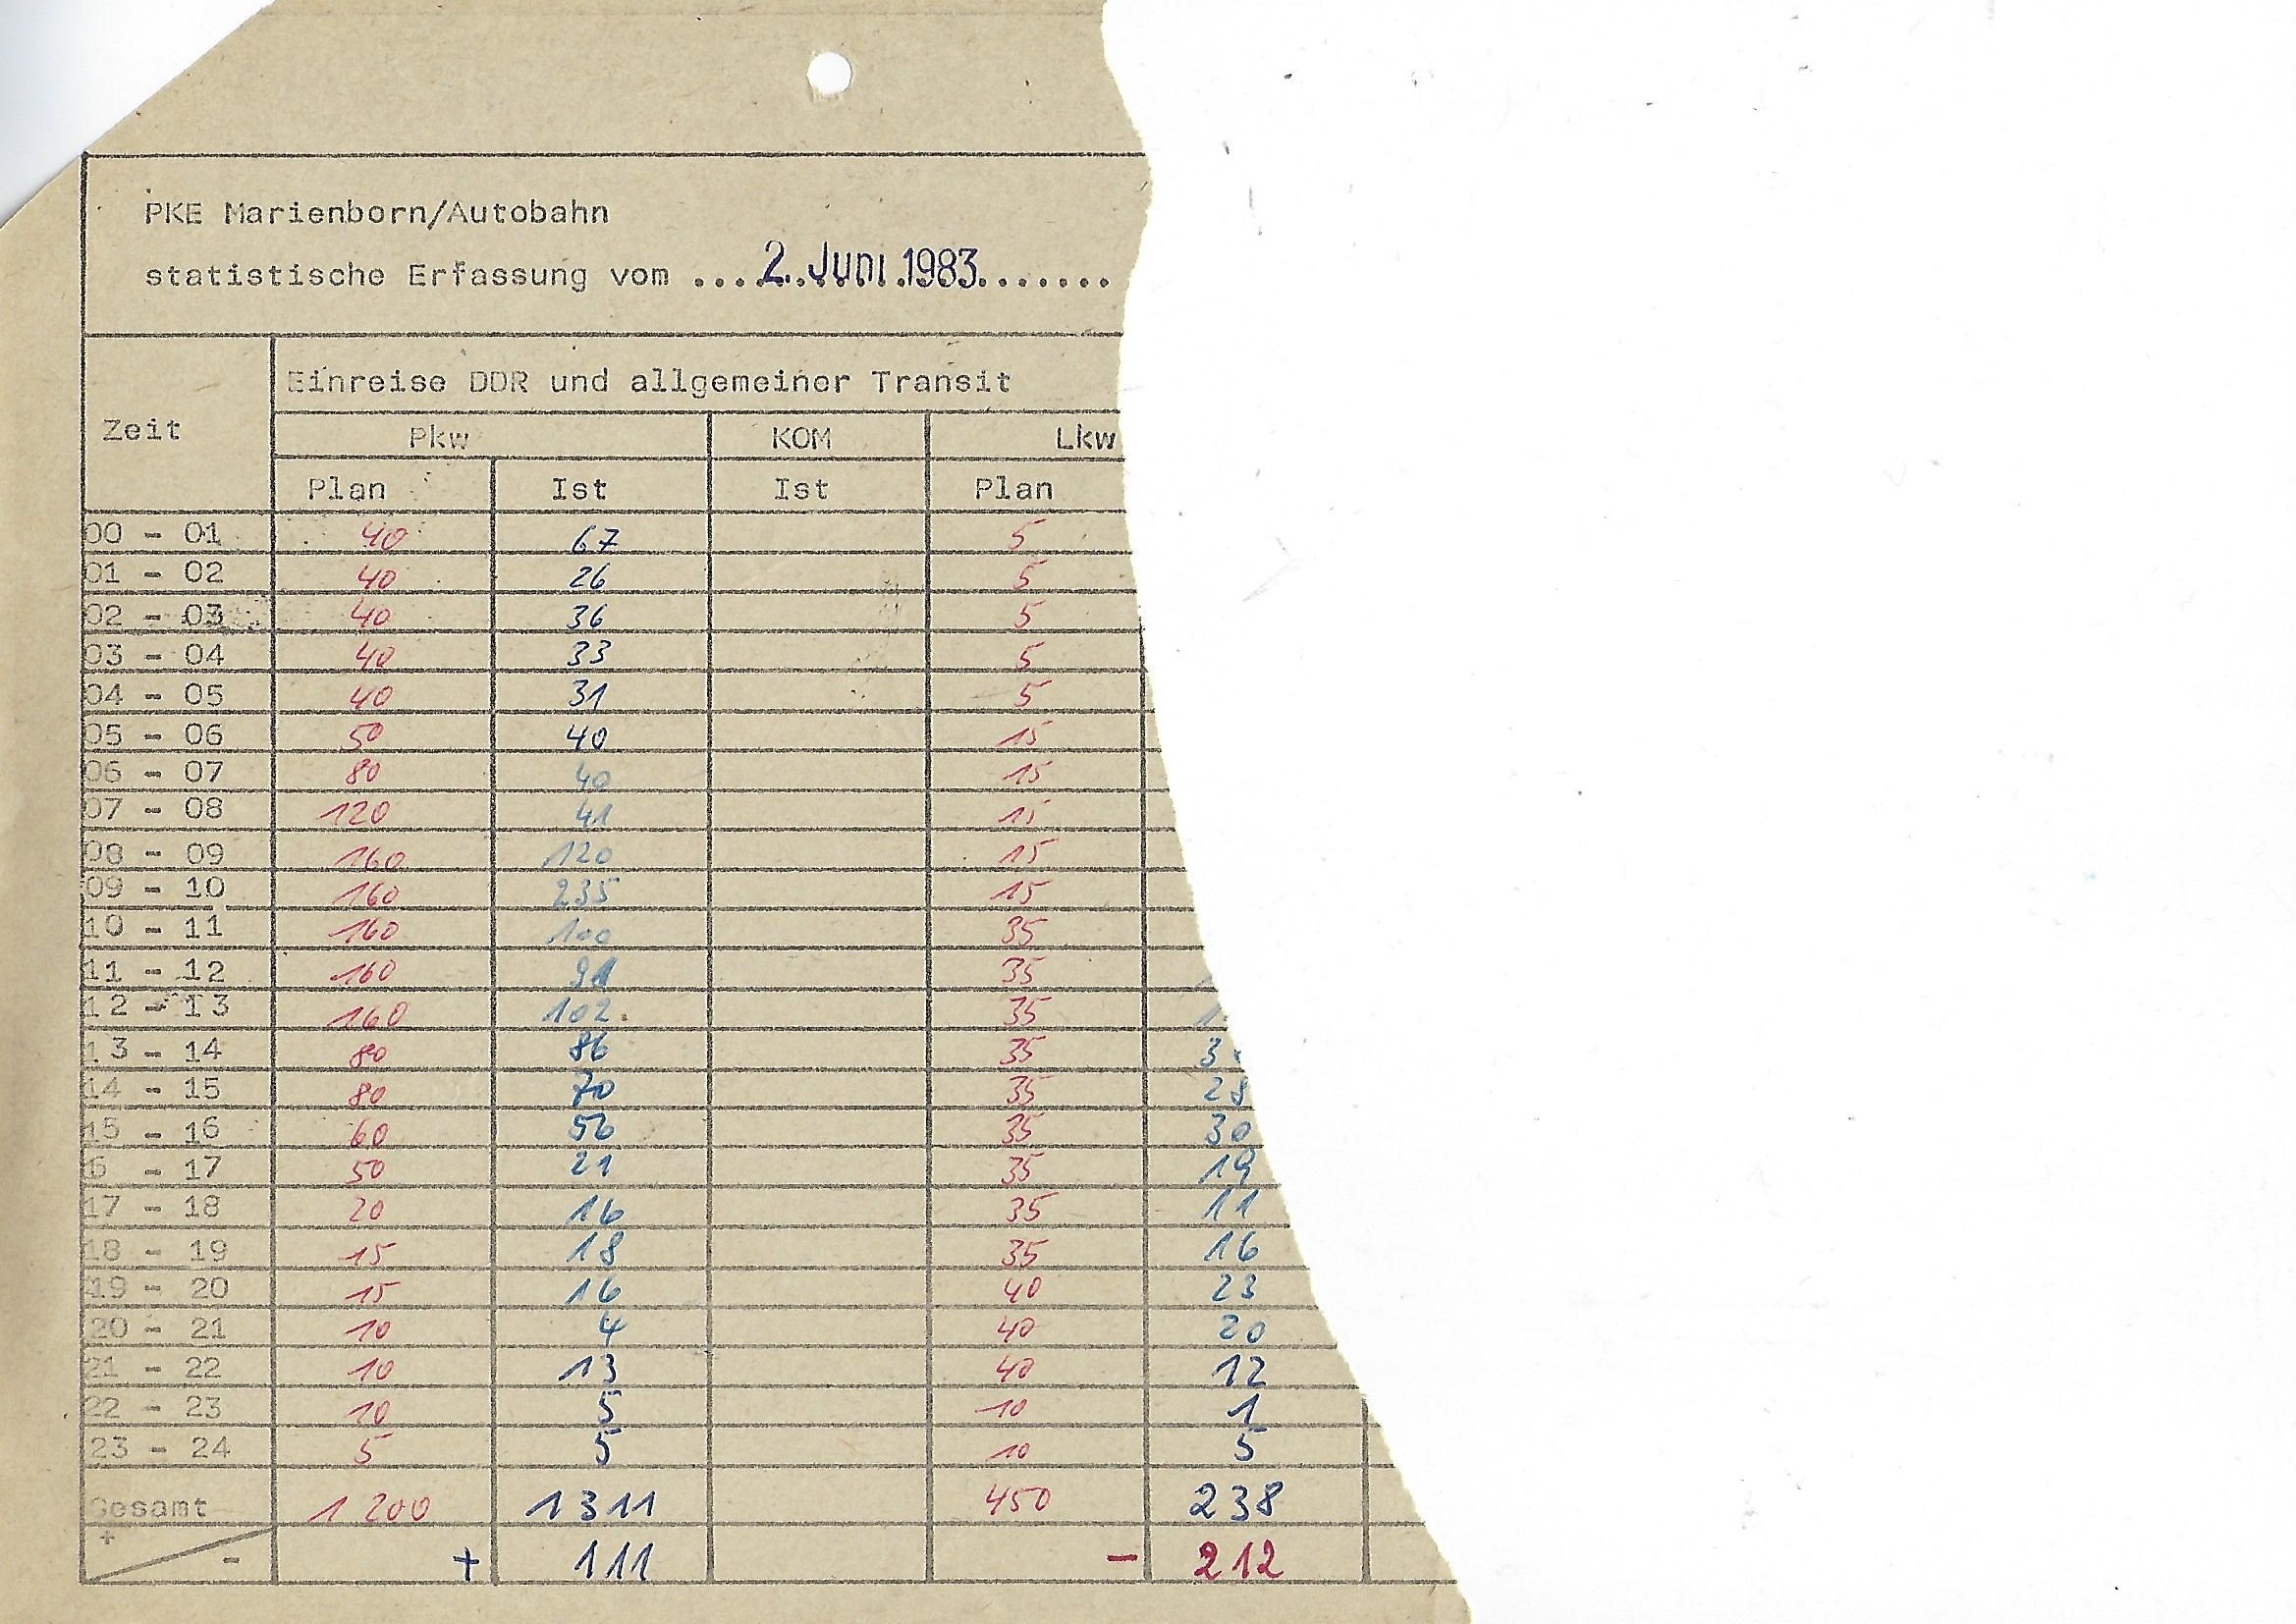 PKE Marienborn/Autobahn
statistische Erfassung vom ....2. Juni 1983.......
Zeit Einreise DDR und allgemeiner Transit
Pkw KOM Lkw
Plan Ist Ist Plan
00 - 01 40 67 5
01 - 02 40 26 5
02 - 03 40 36 5
03 - 04 40 33 5
04 - 05 40 31 5
05 - 06 50 40 15
06 - 07 80 40 15
07 - 08 120 41 15
08 - 09 160 120 15
09 - 10 160 235 15
10 - 11 160 100 35
11 - 12 160 91 35
12 - 13 160 102 35
13 - 14 80 86 35
14 - 15 80 70 35 28
15 - 16 60 56 35 30
6 - 17 50 21 35 19
17 - 18 20 16 35 11
18 - 19 15 18 35 16
19 - 20 15 16 40 23
20 - 21 10 4 40 20
21 - 22 10 13 40 12
22 - 23 10 5 10 1
23 - 24 5 5 10 5
Gesamt 1 200 1311 450 238
+ - + 111 - 212